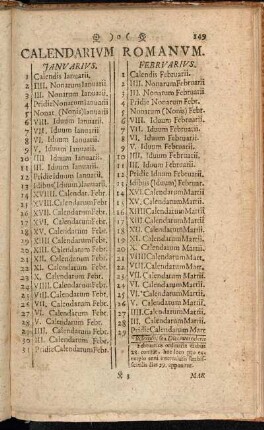 )o( 149
CALENDARIVM ROMANVM.
JANVARIVS.
1 Calendis Ianuarii.
2 IIII. Nonarum Ianuarii
3 III. Nonarum Ianuarii
4 Pridie Nonarum Ianuarii
5 Nonar. (Nonis) Ianuarii
6 VIII. Iduum Ianuarii
7 VII. Iduum Ianuarii
8 VI. Iduum Ianuarii
9 V. Iduum Ianuarii
10 IIII. Iduum Ianuarii
11 III. Iduum Ianuarii
12 Pridie Iduum Ianuarii
13 Idibus (Iduum) Ianuarii
14 XIX. Calendarum Febr.
15 XVIII. Calendarum Febr.
16 XVII. Calendarum Febr.
17 XVI. Calendarum Febr.
18 XV. Calendarum Febr.
19 XIIII Calendarum Febr.
20 XIII. Calendarum Febr.
21 XII. Calendarum Febr.
22 XI. Calendarum Febr.
23 X. Calendarum Febr.
24 VIIII. Calendarum Febr.
25 VIII. Calendarum Febr.
26 VII. Calendarum Febr.
27 VI. Calendarum Febr.
28 V. Calendarum Febr.
29 IIII. Calendarum Febr.
30 III. Calendarum Febr.
31 Pridie Calendarum Febr.
FEBRVARIVS.
1 Calendis Februarii.
2 IIII. Nonarum Februarii
3 III. Nonarum Februarii
4 Pridie Nonarum Febr.
5 Nonarum (Nonis) Febr.
6 VIII. Iduum Februarii.
7 VII. Iduum Februarii.
8 VI. Iduum Februarii.
9 V. Iduum Februarii.
10 IIII. Iduum Februarii.
11 III. Iduum Februarii.
12 Pridie Iduum Februarii
13 Idibus (Iduum) Februar.
14 XVI. Calendarum Martii.
15 XV. Calendarum Martii.
16 XIIII Calendarum Martii.
17 XIII. Calendarum Martii.
18 XII. Calendarum Martii.
19 XI. Calendarum Martii.
20 X. Calendarum Martii.
21 VIIII Calendarum Mart.
22 VIII. Calendarum Martii.
23 VII. Calendarum Martii.
24 VI. Calendarum Martii.
26 V. Calendarum Martii.
27 IIII. Calendarum Martii.
28 III. Calendarum Martii.
29 Pridie Calendarum Mart.
Februarius
28. hoc loco
29. apponere.
K 3 MAR